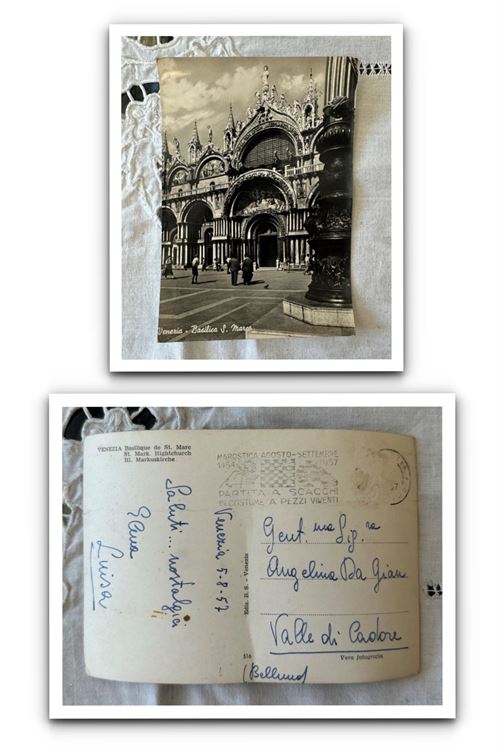 Venezia - Basilica S. Marco
VENEZIA Basilique de St. Marc
St. Mark. Hightchurch
Hl. Markuskirche
MAROSTICA AGOSTO-SETTEMBRE
1454 1957
PARTITA A SCACCHI
IN COSTUME A PEZZI VIVENTI
Venezia 5-8-57
Saluti... nostalgici
Elena
Luisa
Ediz. B. S. - Venezia
Gent.ma Sig.ra
Angelina Da Gian
Valle di Cadore
(Belluno)
516
Vera fotografia